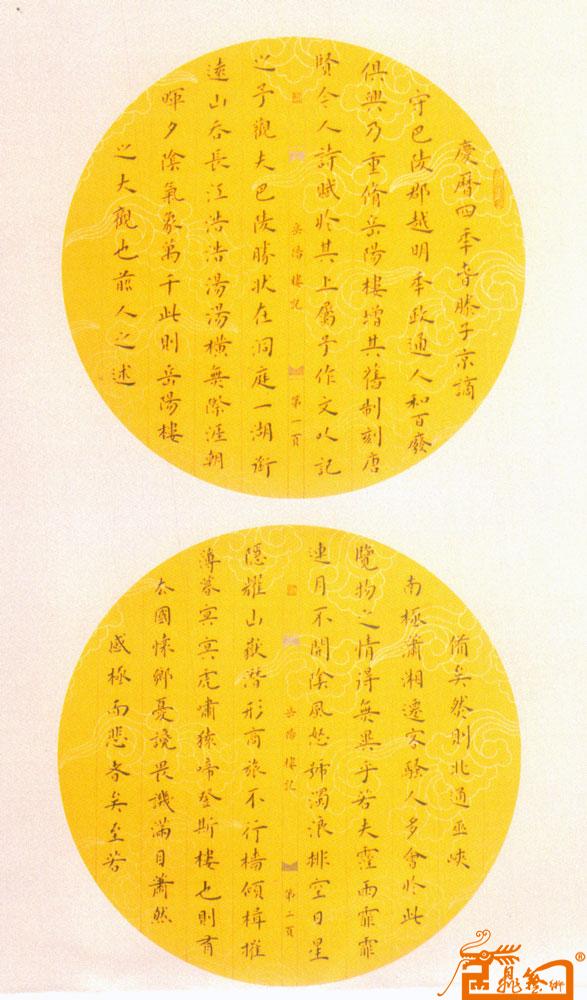 慶曆四秊春滕子京謫
守巴陵郡越明秊政通人和百廢
俱興乃重脩岳陽樓增其舊制刻唐
賢今人詩賦於其上屬予作文以記
岳陽樓記 第一頁
之予觀夫巴陵勝狀在洞庭一湖銜
遠山吞長江浩浩湯湯橫無際涯朝
暉夕陰氣象萬千此則岳陽樓
之大觀也前人之述
備矣然則北通巫峽
南極瀟湘遷客騷人多會於此
覽物之情得無異乎若夫霪雨霏霏
連月不開陰風怒號濁浪排空日星
岳陽樓記 第二頁
隱耀山嶽潛形商旅不行檣傾楫摧
薄暮冥冥虎嘯猿啼登斯樓也則有
去國懷鄉憂讒畏譏滿目蕭然
感極而悲者矣至若